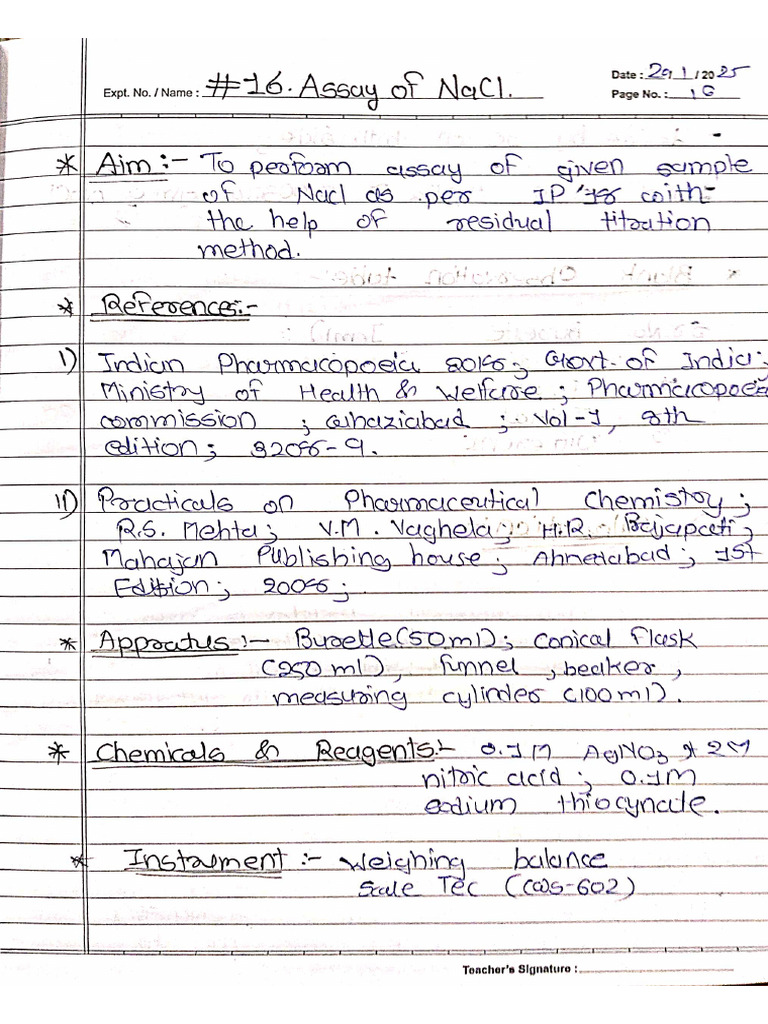 Date : 29/1/2025
Expt. No. / Name : #16. Assay of NaCl.
Page No. : 16
* Aim :- To perform assay of given sample
of Nacl as per IP '18 with
the help of residual titration
method.
* References:-
I) Indian Pharmacopoeia 2018; Govt. of India;
Ministry of Health & Welfare ; Pharmacopoeia
commission ; Ghaziabad ; Vol-1, 8th
edition;
II) Practicals on Pharmaceutical Chemistry ;
R.S. Mehta; V.M. Vaghela; H.R. Bajapati;
Mahajan Publishing house ; Ahmedabad ; 1st
Edition; 2008;
* Appratus :- Burette(50ml); conical flask
(250 ml), funnel , beaker ,
measuring cylinder (100ml).
* Chemicals & Reagents:- 0.1M AgNO3 2M
nitric acid ; 0.1M
sodium thiocynate.
* Instrument :- Weighing balance
Scale Tec (CWS-602)
Teacher's Signature :